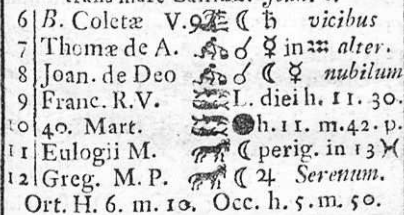 6 B. Coletæ V. ♐ ☾ ♄ vicibus
7 Thomæ de A. ♑ ☌ ☿ in ♒ alter.
8 Joan. de Deo ♑ ☌ ☾ ☿ nubilum
9 Franc. R. V. ♓ L. diei h. 11. 30.
10 40. Mart. ♓ ● h. 11. m. 42. p.
11 Eulogii M. ♈ ☾ perig. in 13 ♓
12 Greg. M. P. ♈ ☾ ♃ Serenum.
Ort. H. 6. m. 10. Occ. h. 5. m. 50.